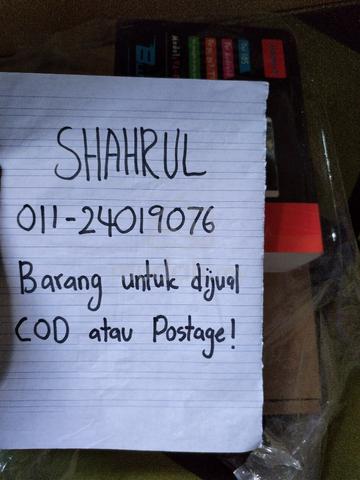 SHAHRUL
011-24019076
Barang untuk dijual
COD atau Postage!